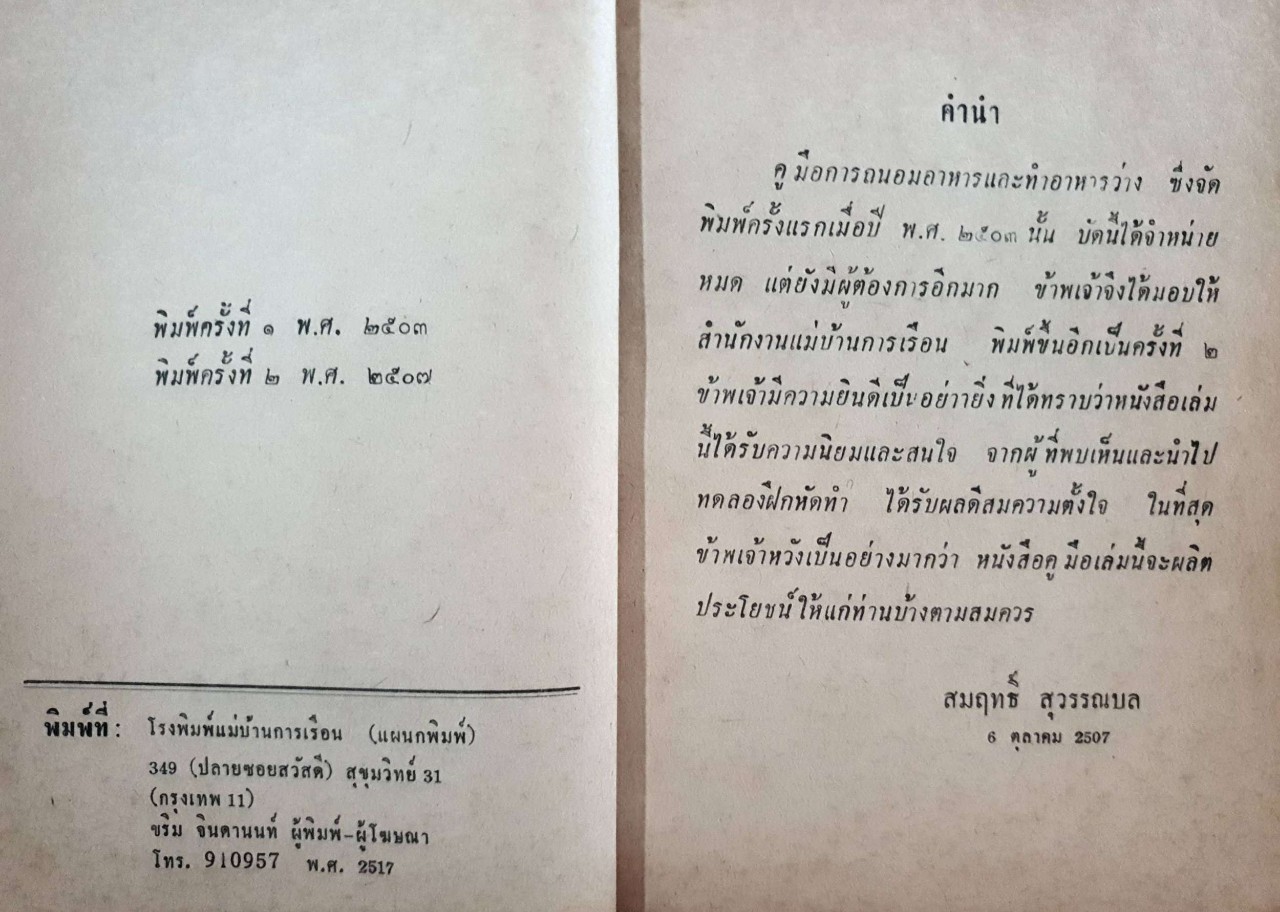 พิมพ์ครั้งที่ ๑ พ.ศ. ๒๕๐๓
พิมพ์ครั้งที่ ๒ พ.ศ. ๒๕๐๗
พิมพ์ที่ : โรงพิมพ์แม่บ้านการเรือน (แผนกพิมพ์)
349 (ปลายซอยสวัสดี) สุขุมวิทย์ 31
(กรุงเทพ 11)
ขริม จินดานนท์ ผู้พิมพ์-ผู้โฆษณา
โทร. 910957 พ.ศ. 2517
คำนำ
คู่มือการถนอมอาหารและทำอาหารว่าง ซึ่งจัด
พิมพ์ครั้งแรกเมื่อปี พ.ศ. ๒๕๐๓ นั้น บัดนี้ได้จำหน่าย
หมด แต่ยังมีผู้ต้องการอีกมาก ข้าพเจ้าจึงได้มอบให้
สำนักงานแม่บ้านการเรือน พิมพ์ขึ้นอีกเป็นครั้งที่ ๒
ข้าพเจ้ามีความยินดีเป็นอย่างยิ่ง ที่ได้ทราบว่าหนังสือเล่ม
นี้ได้รับความนิยมและสนใจ จากผู้ที่พบเห็นและนำไป
ทดลองฝึกหัดทำ ได้รับผลดีสมความตั้งใจ ในที่สุด
ข้าพเจ้าหวังเป็นอย่างมากว่า หนังสือคู่มือเล่มนี้จะผลิต
ประโยชน์ให้แก่ท่านบ้างตามสมควร
สมฤทธิ์ สุวรรณบล
6 ตุลาคม 2507